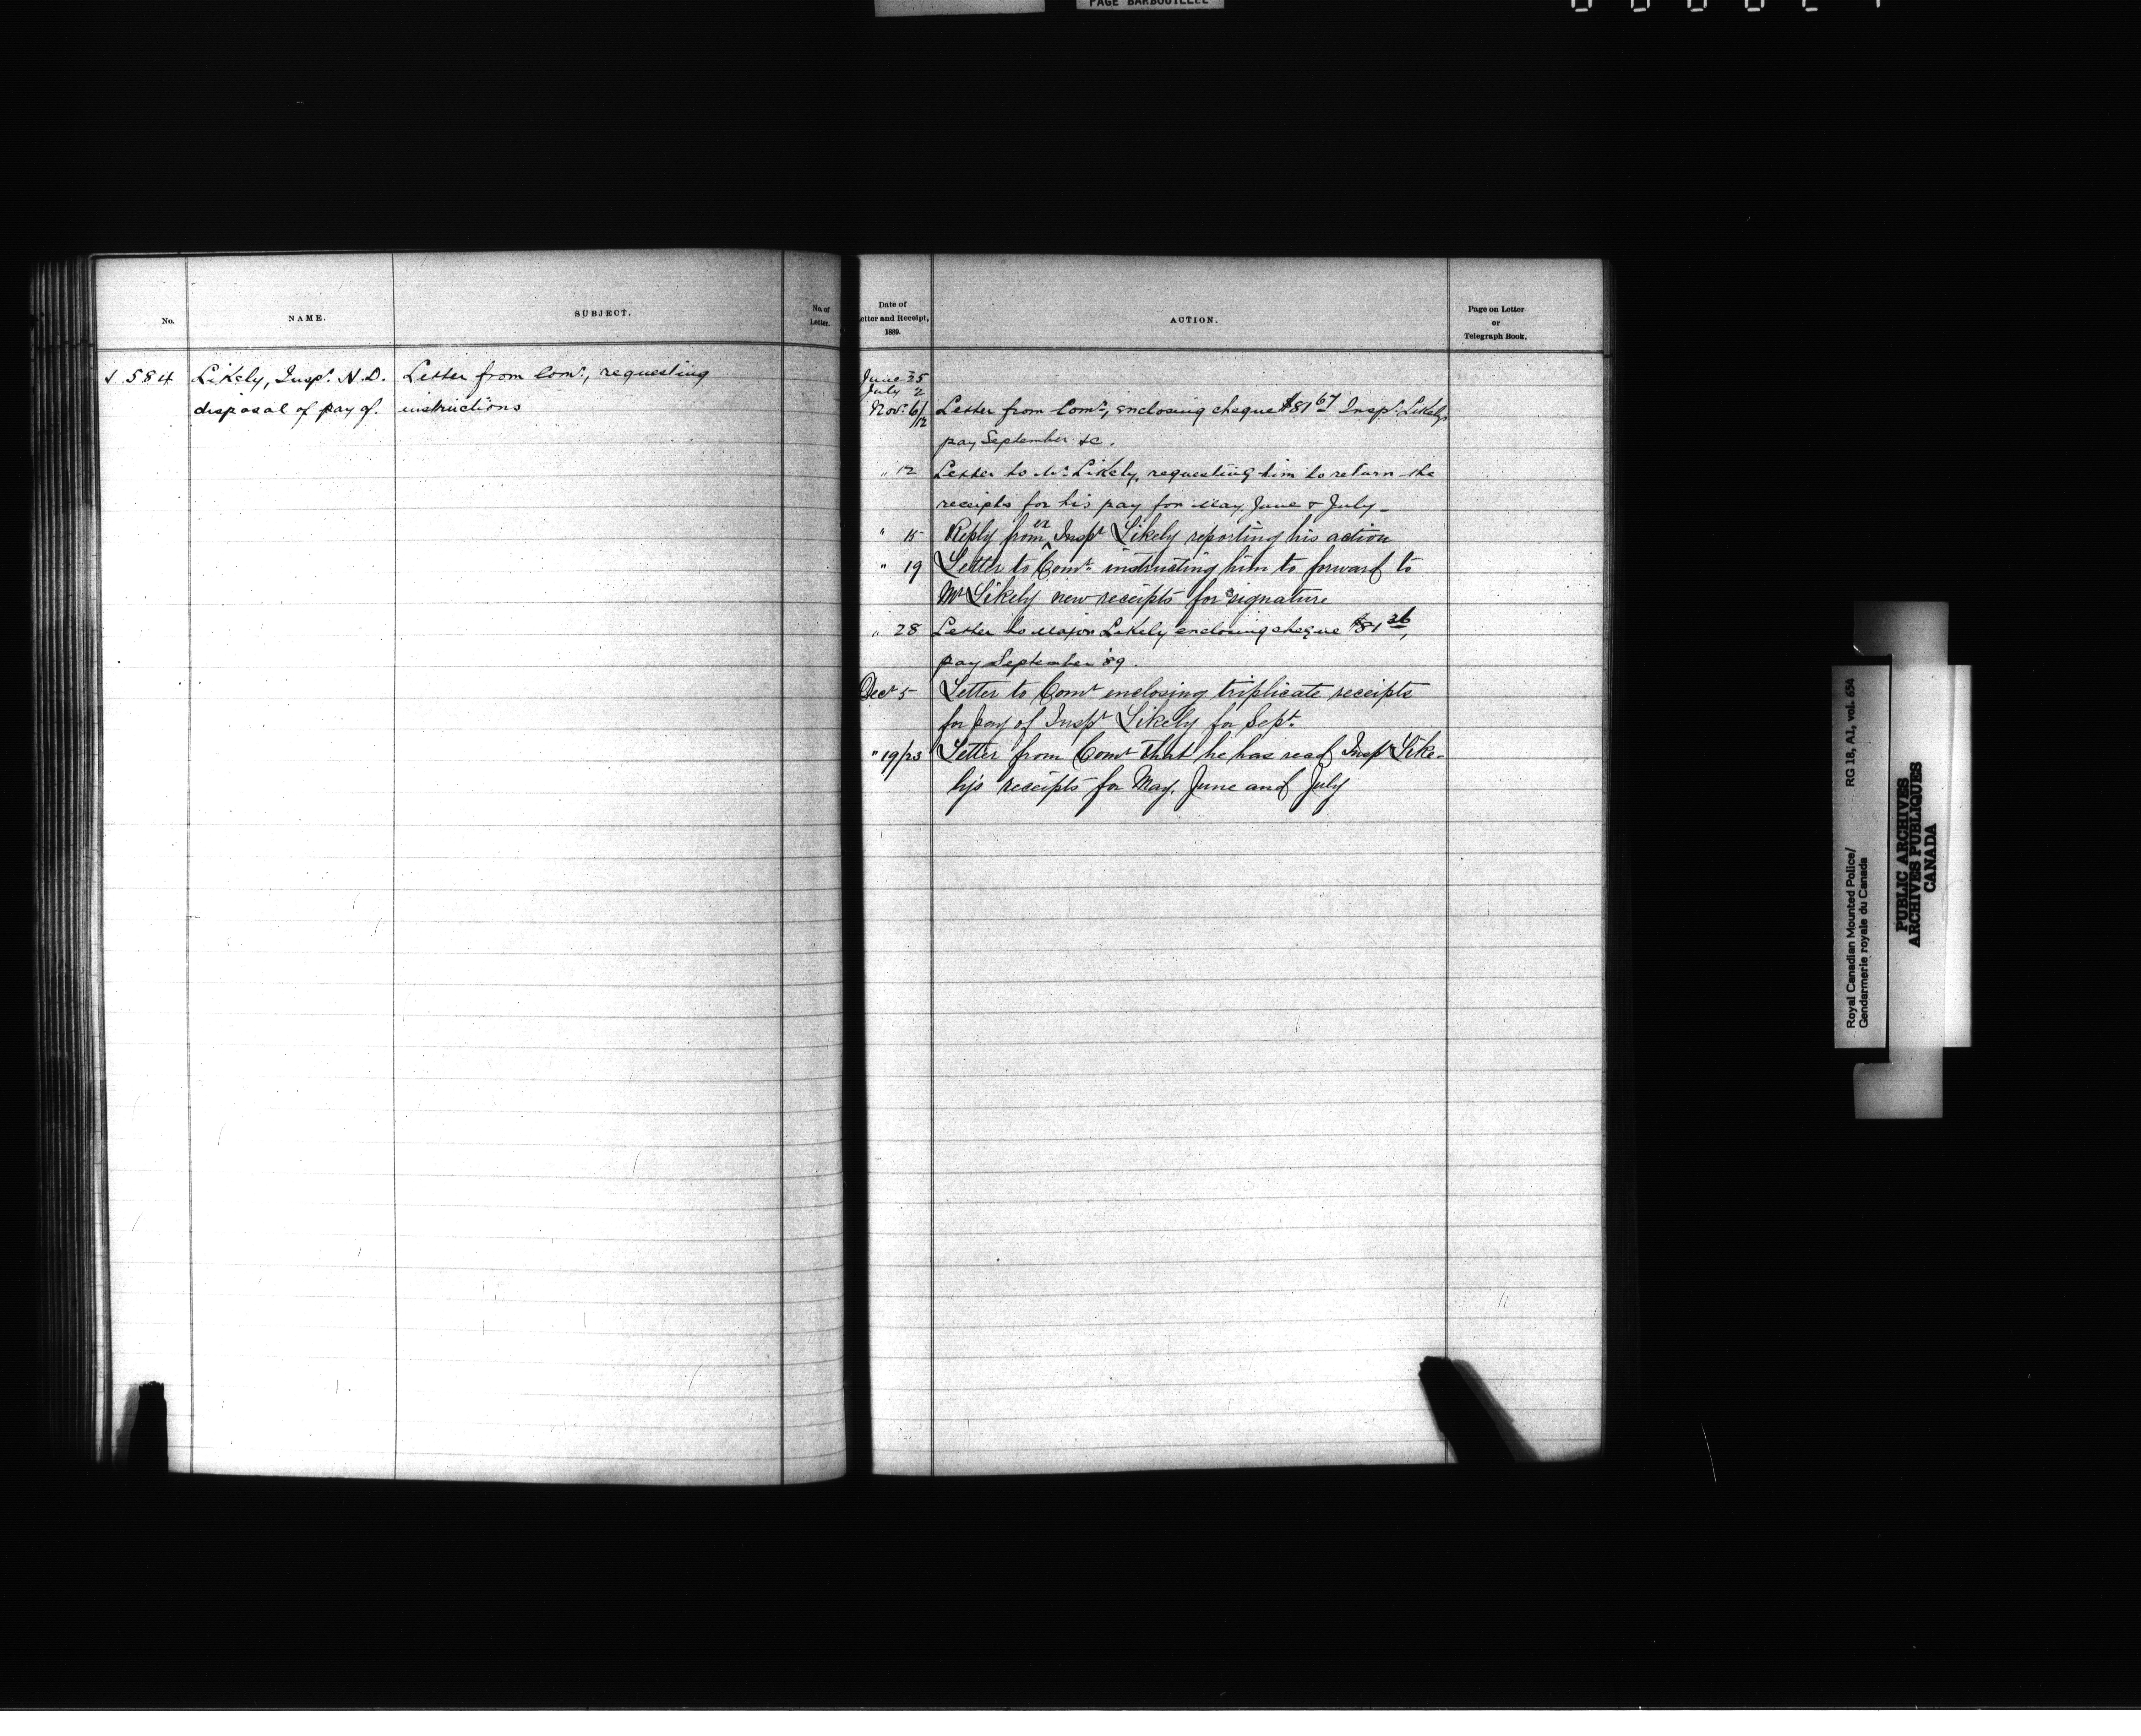 PAGE BARBOUILLEE
No.
NAME.
SUBJECT.
No. of
Letter.
Date of
etter and Receipt,
1889.
ACTION.
Page on Letter
or
Telegraph Book.
584
Likely, Inspr. N.D.
disposal of pay of.
Letter from Comr., requesting
instructions
June 25
July 2
Novr. 6/12
Letter from Comr., enclosing cheque $81 67 Inspr. Likelys
pay September &c.
" 12 Letter to Mr. Likely, requesting him to return the
receipts for his pay for May, June & July_
" 15 Reply from ex Inspr Likely reporting his action
" 19 Letter to Comr. instructing him to forward to
Mr Likely new receipts for signature
" 28 Letter to Major Likely enclosing cheque $81 36,
pay September '89.
Decr 5 Letter to Comr enclosing triplicate receipts
for pay of Inspr Likely for Sept.
" 19/23 Letter from Comr that he has recd Inspr Like-
ly's receipts for May, June and July
Royal Canadian Mounted Police/ RG 18, A1, vol. 654
Gendarmerie royale du Canada
PUBLIC ARCHIVES
ARCHIVES PUBLIQUES
CANADA